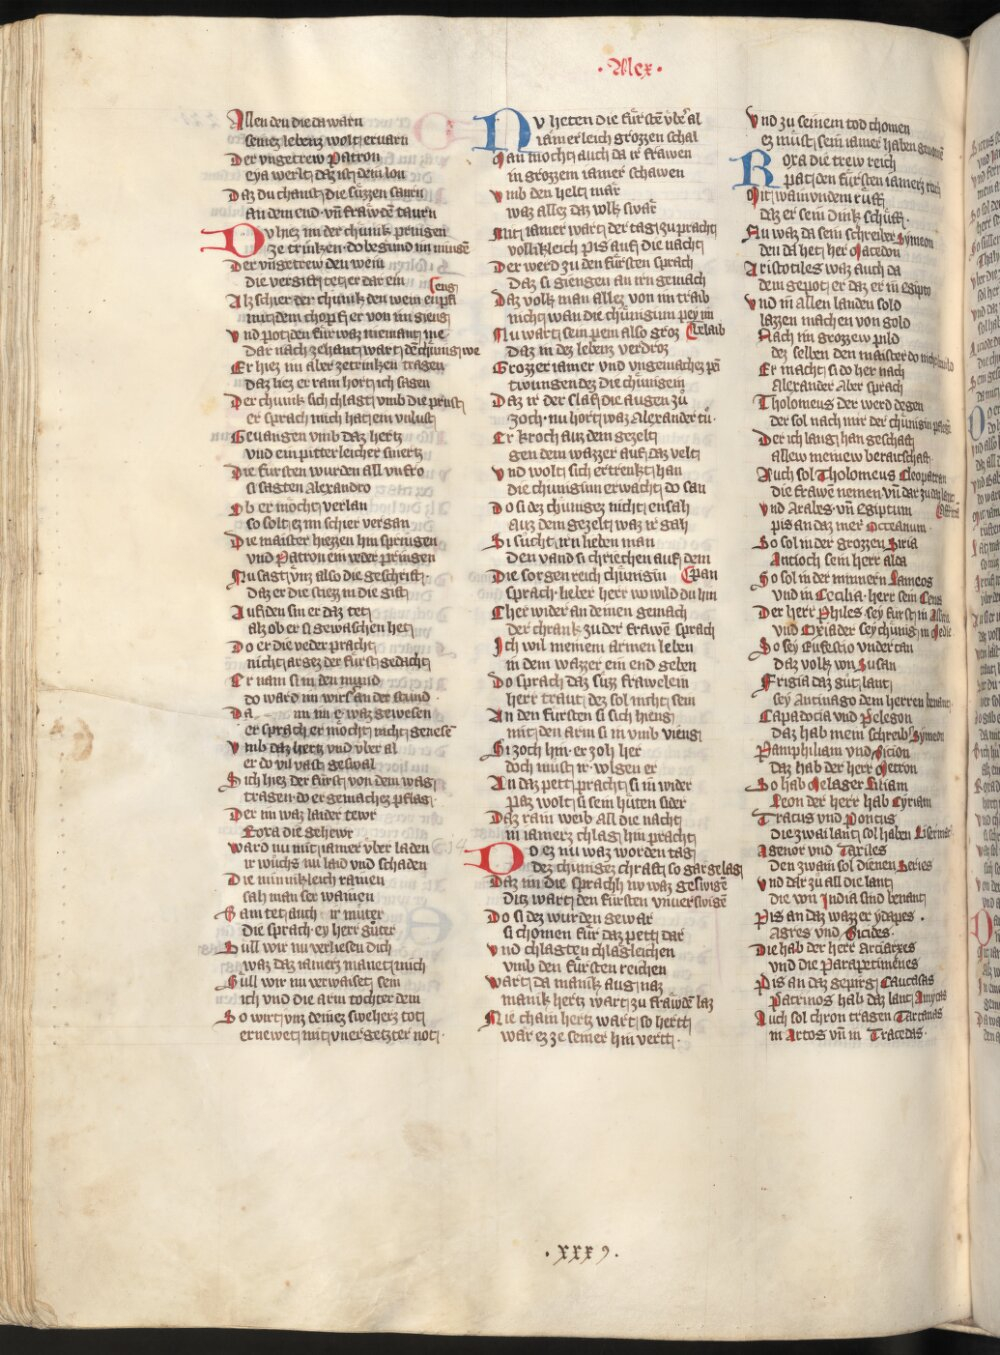 ·Alex·
Allen den die da warn
seinez lebenz wolt ervarn
Der vngetrew Patron
eya werlt daz ist dein lon
Daz du chanst die süzzen saurn
an dem end vñ frawdē taurn
Do hiez im der chunik pringen
ze trinken do begund im misnē
Der vngetrew den wein
die vergift tet er dar ein
Alz schier der chunk den wein enpfa
mit dem chopf er von im gieng
Vnd pot den für waz niemant we
Dar nach zehant wart dē chünig we
Er hiez im aber ze trinken tragen
daz hiez er ram hort ich sagen
Der chunik sich chlagt vmb die prust
er sprach mich hat ein vnlust
Gevangen vmb daz hertz
vnd ein pitterleicher smertz
Die fursten wurden all vnfro
si sagten Alexandro
Ob er möcht verlan
so solt ez im schier vergan
Die maister hiezzen him springen
vnd Patron ein veder pringen
Nu sagt vnz also die geschrift
daz er die stiez in die gift
Auf den sin er daz tet
alz ob er si gewaschen het
Do er die veder pracht
nicht argez der fürst gedacht
Er nam si in den mund
do ward im wirs an der stund
Da im e waz gewesen
er sprach er möcht nicht genesē
Vmb daz hertz vnd vber al
er do vil vast geswal
Sich hiez der fürst von dem wag
tragen do er gemachez pflag
Der im waz laider tewr
Rora die gehewr
Ward nu mit iamer vber laden
ir wuchs nu laid vnd schaden
Die minnikleich ramen
sah man ser wainen
Sam tet auch ir muter
die sprach ey herr guter
Süll wir nu verliesen dich
waz daz iamerz manet mich
Süll wir nu verwaiset sein
ich vnd die arm tochter dein
So wirt vnz deinez sweherz tot
ernewet mit vnergetzter not
Nv heten die fürstē vber al
iamerleich grozzen schal
Man mocht auch da ir frawen
in grozzem iamer schawen
Vmb den helt mär
waz allez daz volk swär
Mit iamer wart der tag zu pracht
vollikleich pis auf die nacht
Der werd zu den fürsten sprach
daz si giengen an irn gemach
Daz volk man allez von im traib
nicht wan die chüniginn pey im
Nu wart sein pein also groz belaib
daz in dez lebenz verdroz
Grozzer iamer vnd vngemachez pē
twungen dez die chünigein
Daz ir der slaf die augen zu
zoch nu hort waz Alexander tu
Er kroch auz dem gezelt
gen dem wazzer auf daz velt
Vnd wolt sich ertrenkt han
die chuniginn erwacht do san
Do si dez chunigez nicht ensah
auz dem gezelt waz ir gah
Si sucht irn lieben man
Den vand si chriechen auf dem
Die sorgen reich chünigin Pan
sprach lieber herr wo wild du hin
Cher wider an deinen gemach
der chrank zu der frawē sprach
Ich wil meinem armen lebñ
in dem wazzer ein end geben
Do sprach daz suzz frawelein
herr traut dez sol nicht sein
An den fürsten si sich hieng
mit den arm si in vmb vieng
Si zoch hin er zoh her
doch must ir volgen er
An daz pett pracht si in wider
paz wolt si sein hüten sider
Daz rain weib all die nacht
in iamerz chlag hin pracht
Do ez nu waz worden tag
dez chunigez chraft so gar gelag
Daz im die sprach nv waz geswigē
Ditz wart den fürsten vnuerswigē
Do si dez wurden gewar
si chomen für daz pett dar
Vnd chlagten chlägleichen
vmb den fürsten reichen
Wart da manik aug naz
manik hertz wart zu frawdē laz
Nie chain hertz wart so hertt
war ez ze seiner hin vertt
Vnd zu seinem tod chomen
ez must sein iamer haben genomē
Rora die trew reich
pat den fürsten iamerz reich
Mit wainvndem ruff
daz er sein dink schüff
Nu waz da sein schreiber Symeon
den da het her Macedon
Aristotiles waz auch da
dem gepot er daz er in Egipto
Vnd in allen landen sold
lazzen machen von gold
Nach im grozzew pild
dez selben den maister do nicht
Er macht si do her nach
Alexander Aber sprach
Tholomeus der werd degen
der sol nach mir der chünigin pflegen
Der ich lang han geschaft
allew meinew berauschaft
Auch sol Tholomeus Cleopatran
die frawē nemen vñ dar zu
Vnd Arabes vñ Egiptum
pis an daz mer Occeanum
So sol in der grozzen Siria
Antioch sein herr alda
So sol in der minnern Lameos
vnd in Cecilia herr sein Cens
Der herr Philes sey fürst in
vnd Oxiader sey chünig in Medie
So sey Eufestio vndertan
daz volk von Susan
Frigia daz gut lant
sey Antinago dem herren benant
Capadocia vnd Pelegon
daz hab mein schreib Symeon
Pamphiliam vnd Licion
daz hab der herr Metron
So hab Melager Liliam
Leon der herr hab Cyriam
Tracius vnd Pontus
die zwai lant sol haben
Agenor vnd Taxiles
Den zwain sol dienen Series
Vnd dar zu all die lant
die von India sind benant
Pis an daz wazzer ydapes
Agres vnd Sicides
Die hab der herr Arciarxes
vnd die Parapetimenes
Pis an daz gepirg Caucasas
Patrinos hab daz lant
Auch sol chron tragen Tarcanas
in Artos vñ in Tracedas
·xxx9·